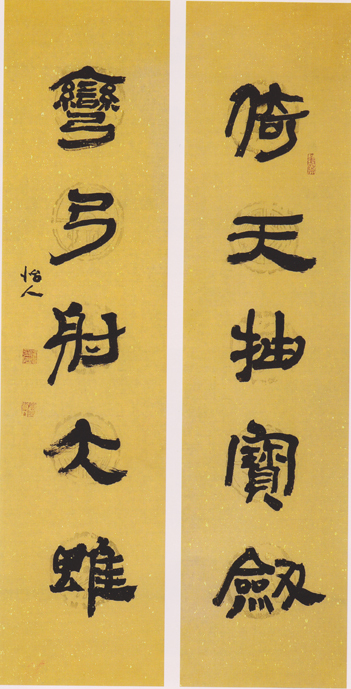 倚天抽寶劒
彎弓射大
怡人